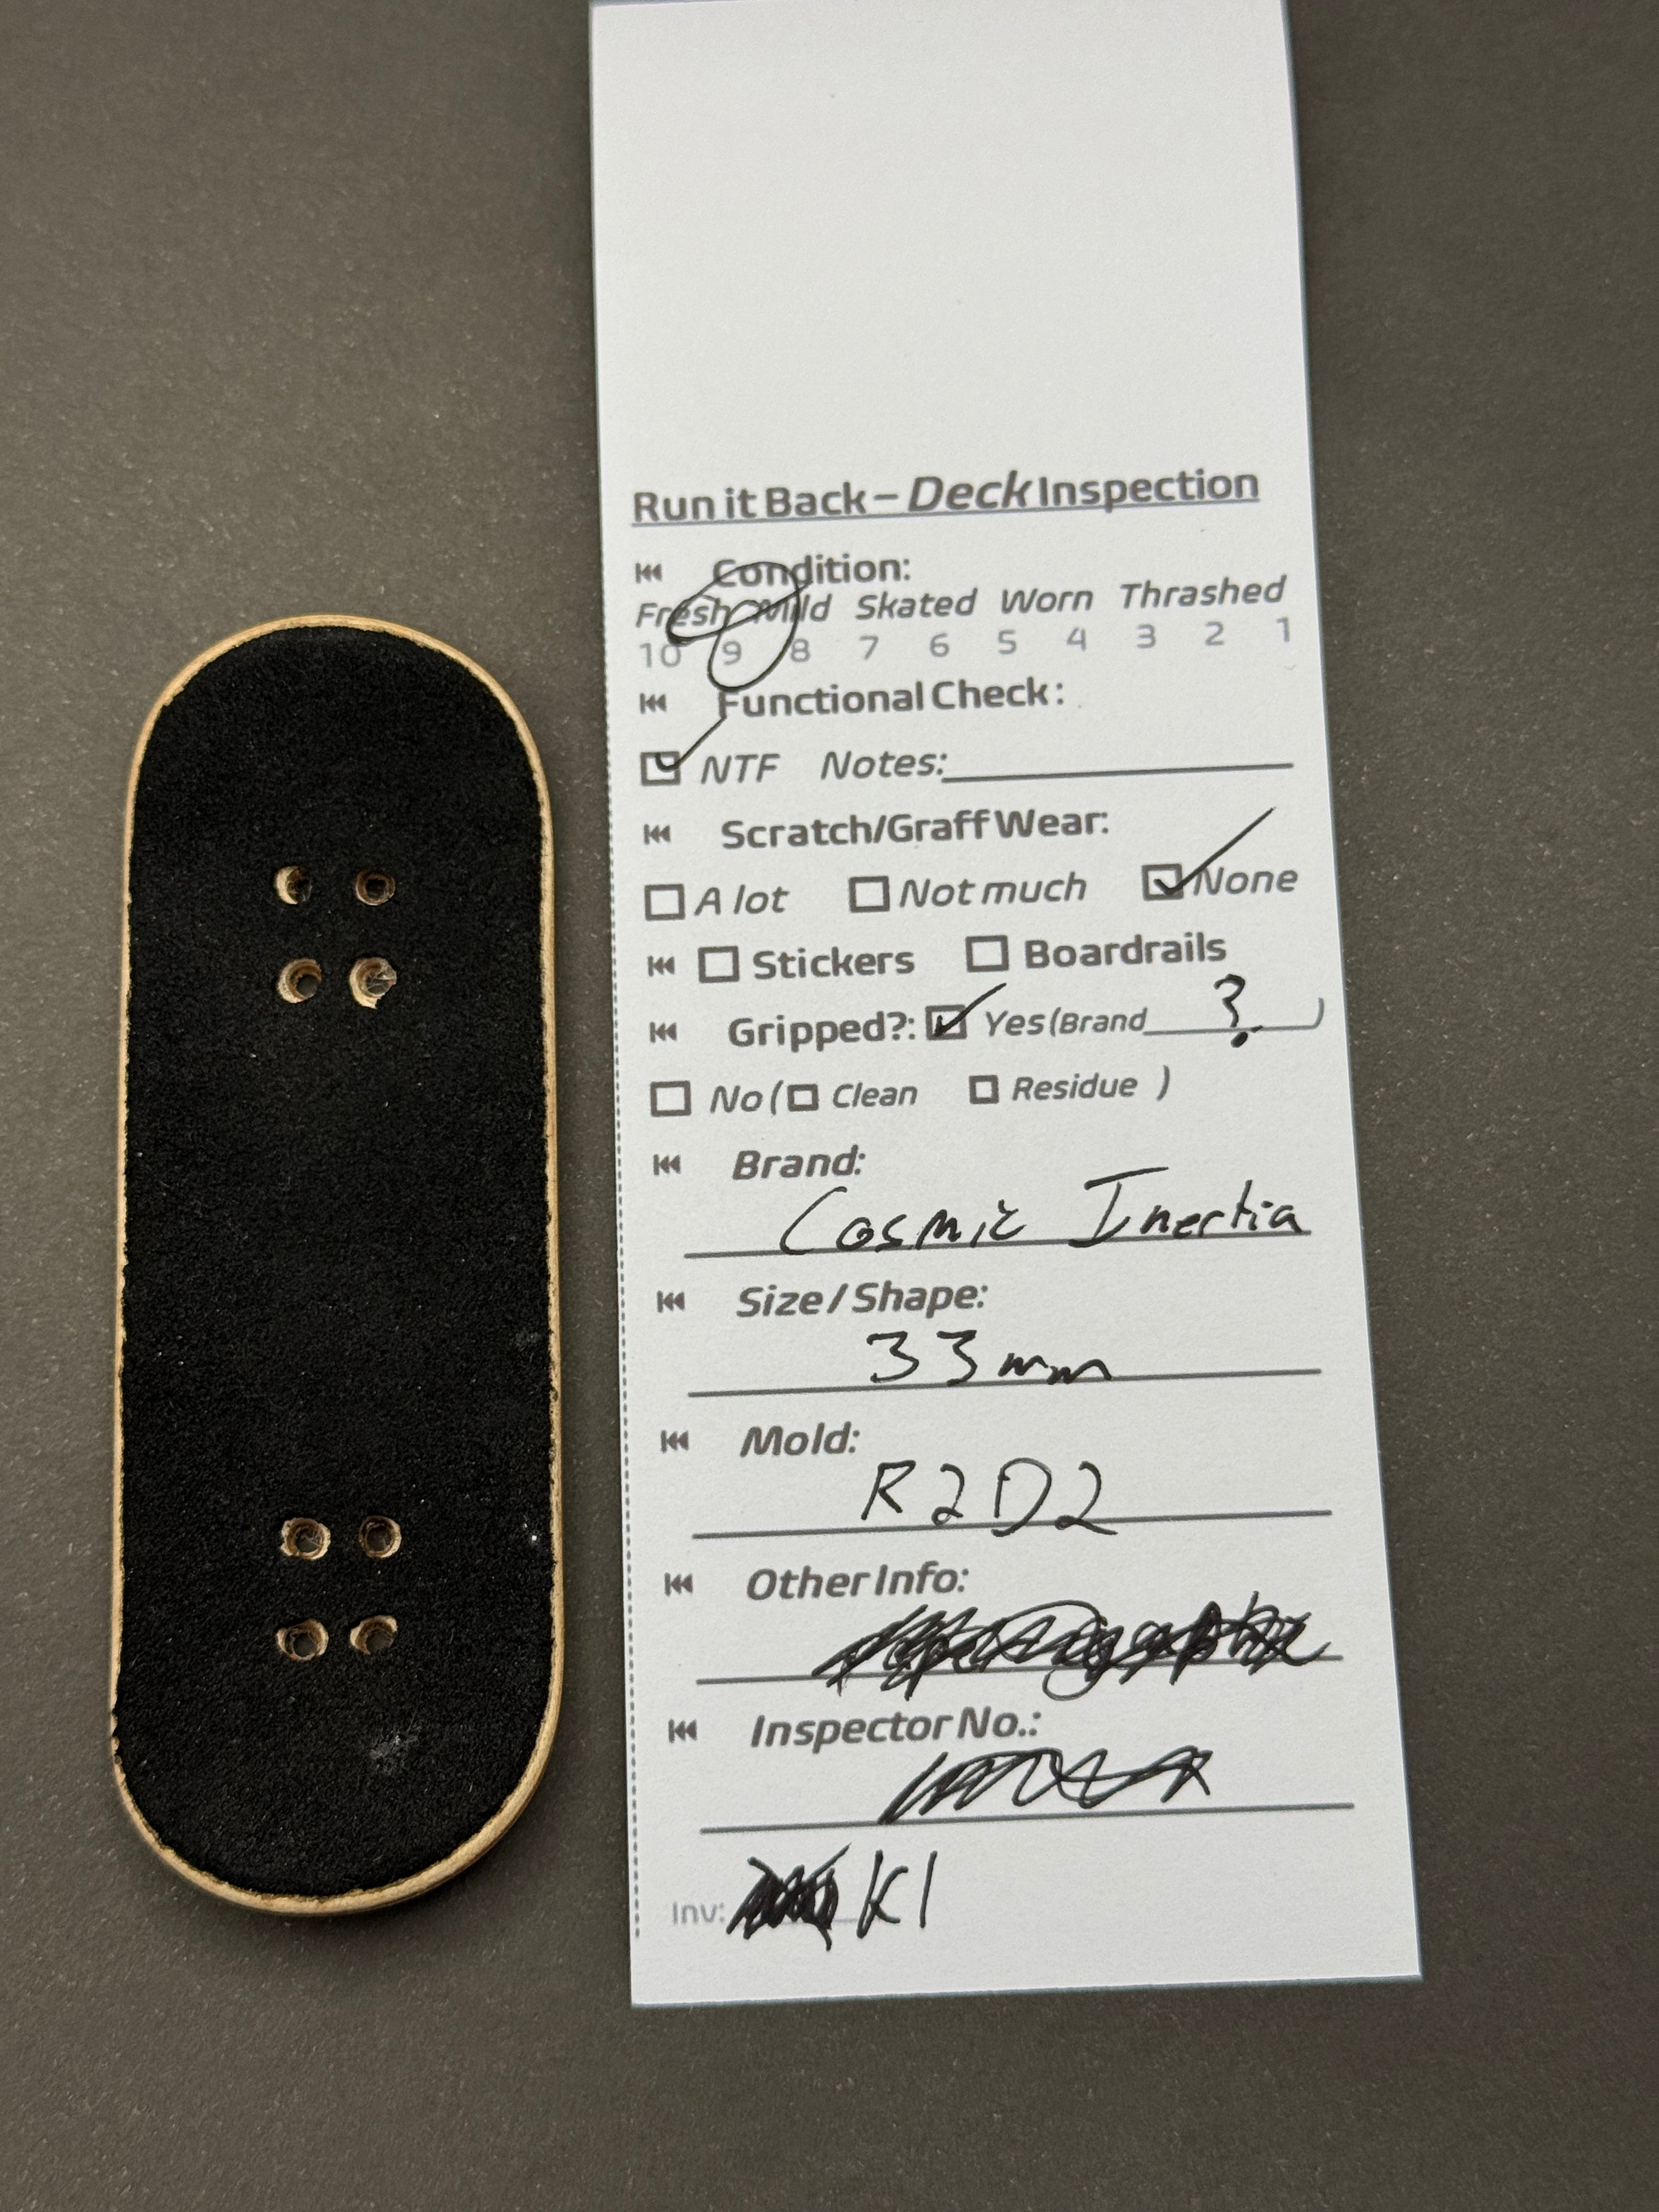 Run it Back – Deck Inspection
Condition:
Fresh Mild Skated Worn Thrashed
10 9 8 7 6 5 4 3 2 1
Functional Check:
NTF Notes:
Scratch/Graff Wear:
A lot Not much None
Stickers Boardrails
Gripped?: Yes (Brand ? )
No ( Clean Residue )
Brand:
Cosmic Inertia
Size / Shape:
33mm
Mold:
R2D2
Other Info:
Inspector No.:
Inv: K1